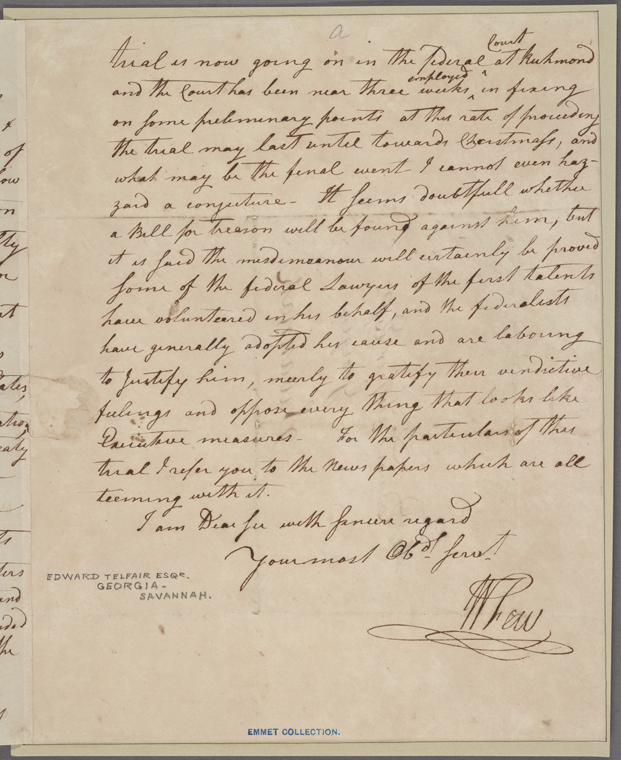 a
Court
trial is now going on in the federal ^ at Richmond
employed
and the Court has been near three weeks ^ in fixing
on some preliminary points at this rate of proceeding
the trial may last until towards Christmass, and
what may be the final event I cannot even haz-
zard a conjecture - It seems doubtfull whether
a Bill for treason will be found against him, but
it is said the misdemeanour will certainly be proved
Some of the federal Lawyers of the first talents
have volunteered in his behalf, and the federalists
have generally adopted his cause and are labouring
to Justify him, meerly to gratify their vindictive
feelings and oppose every thing that looks like
Executive measures - For the particulars of this
trial I refer you to the News papers which are all
teeming with it.
I am Dear Sir with Sincere regard
Your most Obdt Servt
W Few
EDWARD TELFAIR ESQR.
GEORGIA -
SAVANNAH.
EMMET COLLECTION.